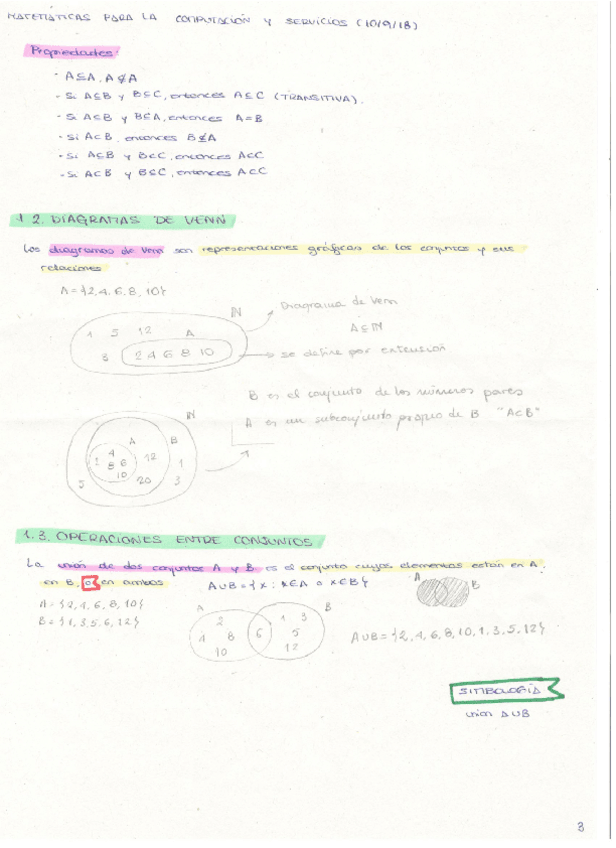 MATEMÁTICAS PARA LA COMPUTACIÓN Y SERVICIOS (10/9/18)
Propiedades:
· A⊆A, A⊄A
- Si A⊆B y B⊆C, entonces A⊆C (TRANSITIVA).
- Si A⊆B y B⊆A, entonces A=B
- Si A⊂B, entonces B⊄A
- Si A⊆B y B⊂C, entonces A⊂C
- Si A⊂B y B⊆C, entonces A⊂C
1.2. DIAGRAMAS DE VENN
Los diagramas de Venn son representaciones gráficas de los conjuntos y sus
relaciones
A={2,4,6,8,10}
ℕ
Diagrama de Venn
1 5 12 A
A⊆ℕ
3 2 4 6 8 10
se define por extensión
B es el conjunto de los números pares
A es un subconjunto propio de B "A⊂B"
ℕ
A B
4
1 8 6 12 1
10
5 20 3
1.3. OPERACIONES ENTRE CONJUNTOS
La unión de dos conjuntos A y B es el conjunto cuyos elementos están en A,
en B, o en ambos
A∪B={x: x∈A o x∈B}
A B
A={2,4,6,8,10}
B={1,3,5,6,12}
A B
2 1 3
4 8 6 5
10 12
A∪B={2,4,6,8,10,1,3,5,12}
SIMBOLOGÍA
unión A∪B
3